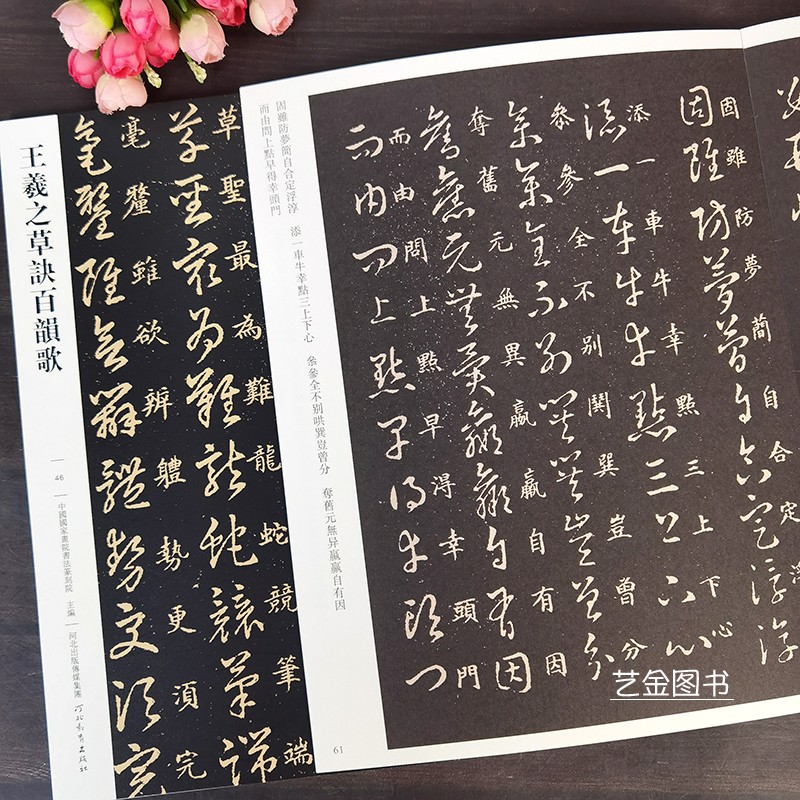 王羲之草訣百韻歌
46
中國國家畫院書法篆刻院 主編
河北出版傳媒集團 河北教育出版社
草聖最為難龍蛇競筆端
毫釐雖欲辨體勢更須完
固雖防夢簡自合定浮淳 添一車牛幸點三上下心 叅參全不别哄巽豈曾分 奪舊元無异嬴羸自有因
而由問上點早得幸頭門
固雖防夢簡自合定
添一車牛幸點三上下心
叅參全不别閧巽豈曾分
奪舊元無異嬴羸自有因
而由問上點早淂幸頭門
61
艺金图书